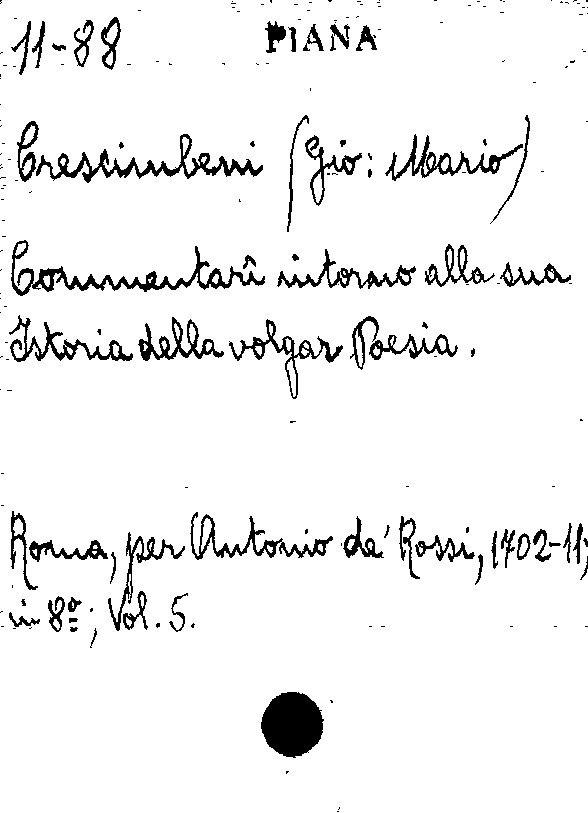 11-88 PIANA
Crescimbeni (Gio: Mario)
Commentarî intorno alla sua
Istoria della volgar Poesia.
Roma, per Antonio de' Rossi, 1702-11;
in 8º; Vol. 5.